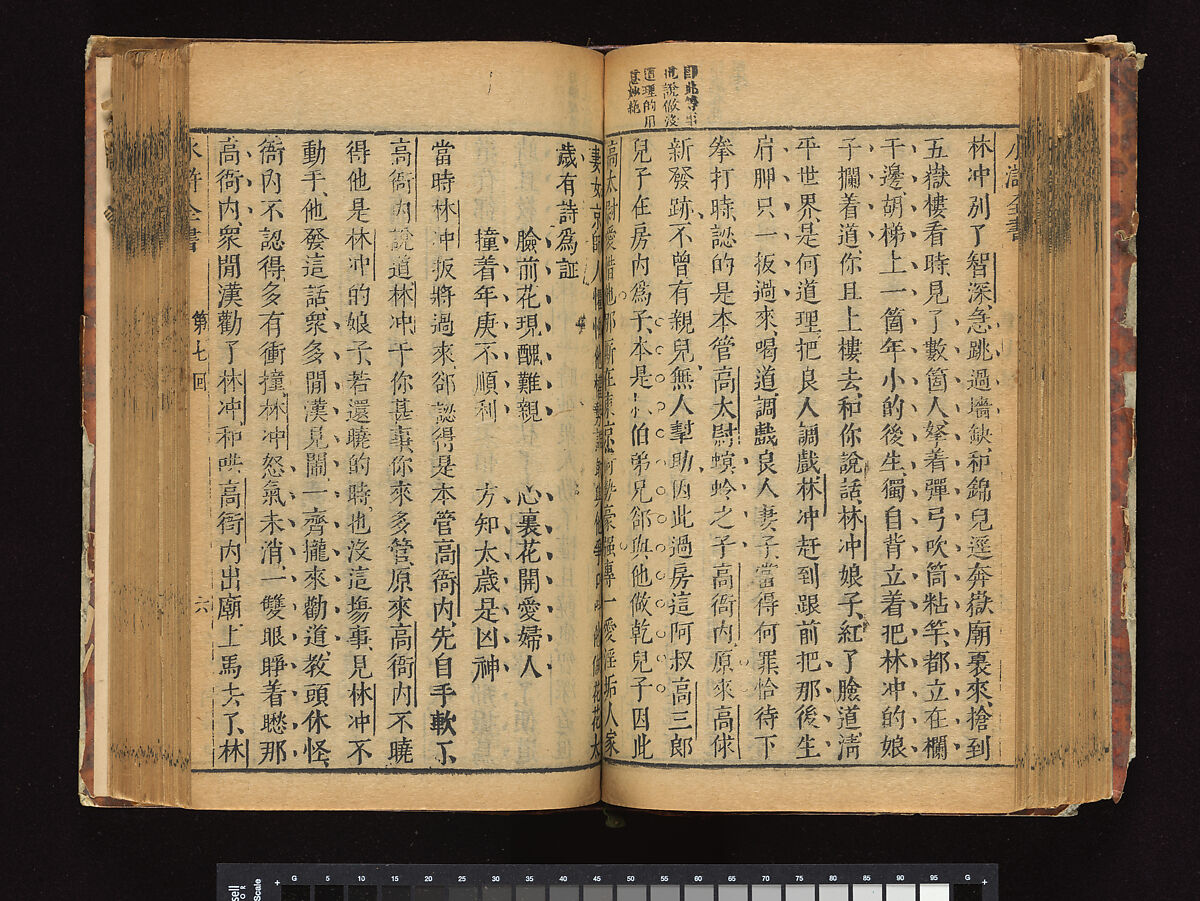 水滸全書
林冲別了智深急跳過墻缺和錦兒逕奔嶽廟裏來搶到
五嶽樓看時見了數箇人拏着彈弓吹筒粘竿都立在欄
干邊胡梯上一箇年小的後生獨自背立着把林冲的娘
子攔着道你且上樓去和你說話林冲娘子紅了臉道清
平世界是何道理把良人調戲林冲赶到跟前把那後生
肩胛只一扳過來喝道調戲良人妻子當得何罪恰待下
拳打時認的是本管高太尉螟蛉之子高衙內原來高俅
新發跡不曾有親兒無人幫助因此過房這阿叔高三郎
兒子在房內爲子本是叔伯弟兄卻與他做乾兒子因此
高太尉愛惜他那厮在東京倚勢豪強專一愛淫垢人家
妻女京師人
歲有詩爲証
臉前花現醜難親 心裏花開愛婦人
撞着年庚不順利 方知太歲是凶神
當時林冲扳將過來卻認得是本管高衙內先自手軟了
高衙內說道林冲干你甚事你來多管原來高衙內不曉
得他是林冲的娘子若還曉的時也沒這塲事見林冲不
動手他發這話衆多閒漢見鬧一齊攏來勸道教頭休怪
衙內不認得多有衝撞林冲怒氣未消一雙眼睜着瞅那
高衙內衆閒漢勸了林冲和哄高衙內出廟上馬去了林
水滸全書 第七回 六
G 5 10 15 20 25 30 35 40 45 50 55 60 65 70 75 80 85 90 95 G
Scale